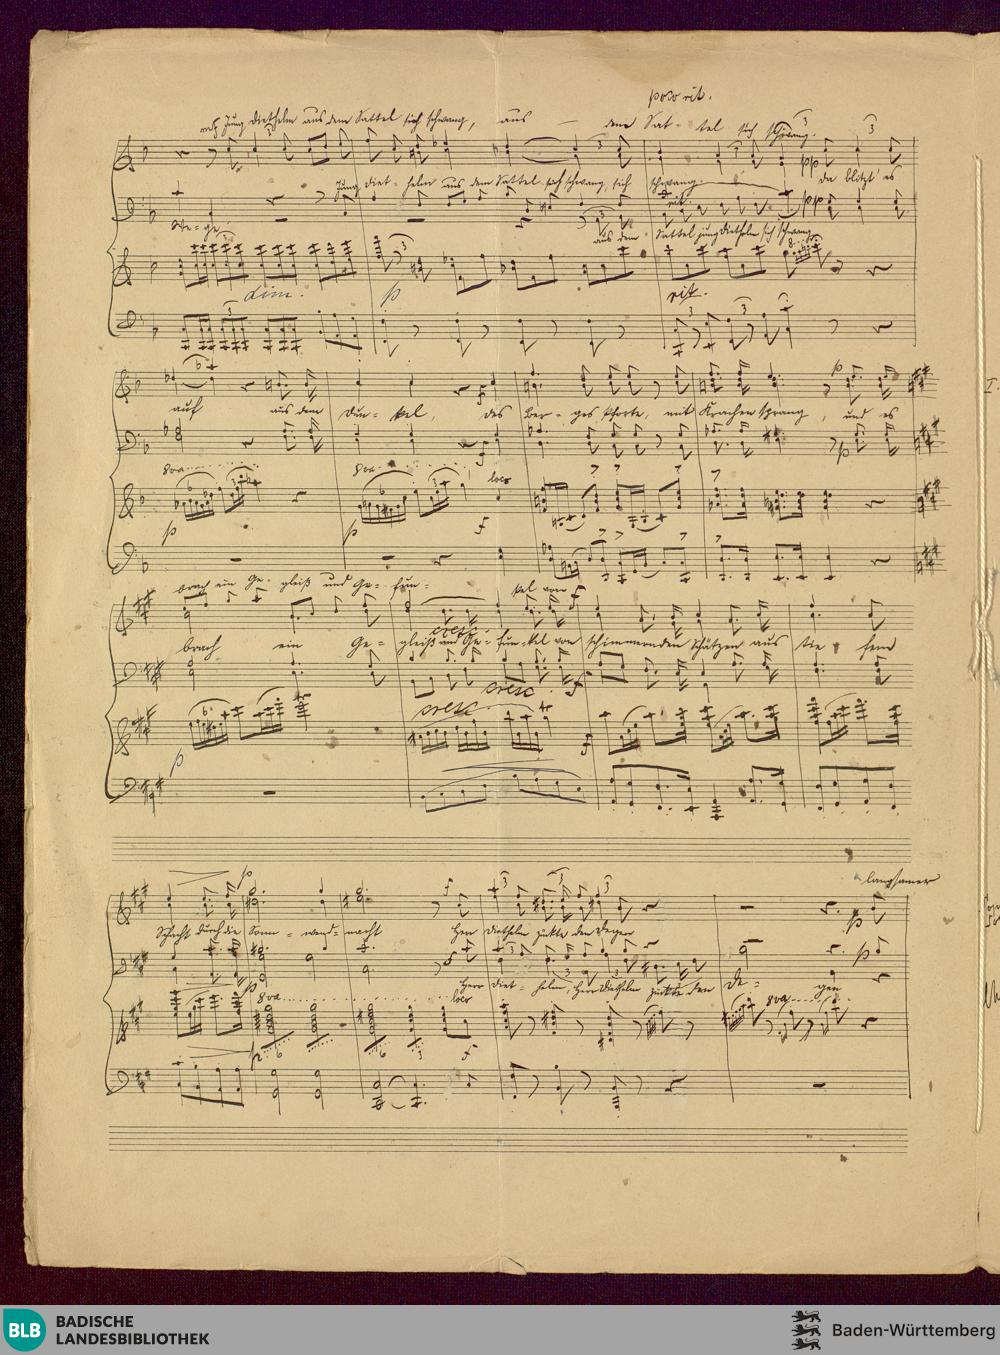 poco rit.
mf Jung Diethelm aus dem Sattel sich schwang, aus dem Sat-tel sich schwang.
3 3
pp da blitzt' es
Jung Diet-helm aus dem Sattel sich schwang, sich schwang.
rit. pp
We-ge
aus dem Sattel jung Diethelm sich schwang
dim. p rit.
auf aus dem Dun-kel, des Ber-ges Pforte, mit Krachen sprang, und es
8va 8va loco
p p f
brach ein Ge-gleiß und Ge-fun-kel von
cresc.
brach ein Ge-gleiß und Ge-fun-kel von schimmernden Schätzen aus tie-fem
cresc. f
cresc.
p f
langsamer
Schacht durch die Sonn-wend-nacht Herr Diethelm zückte den Degen
Herr Diet-helm, Herr Diethelm zückte den De-gen
8va loco 8va
p f
BLB BADISCHE
LANDESBIBLIOTHEK
Baden-Württemberg